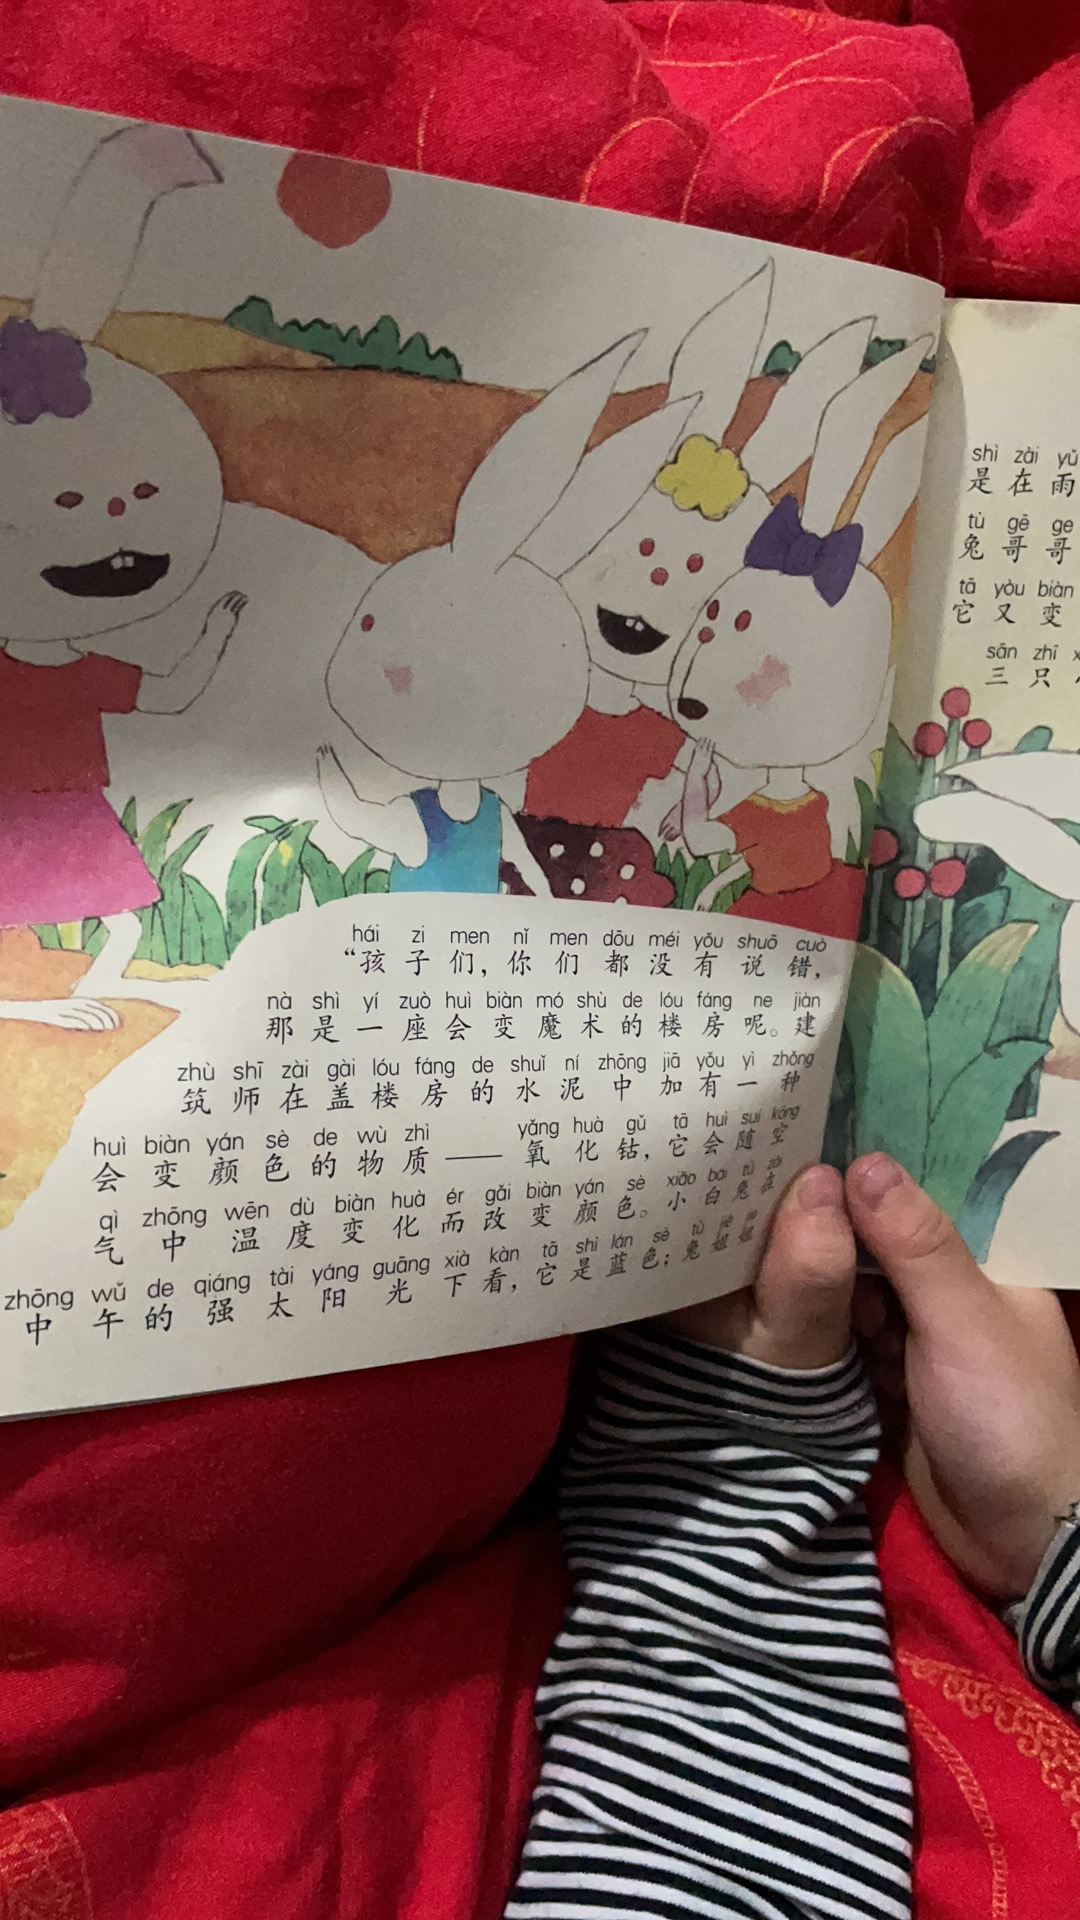 hái zi men nǐ men dōu méi yǒu shuō cuò
“孩子们，你们都没有说错，
nà shì yí zuò huì biàn mó shù de lóu fáng ne jiàn
那是一座会变魔术的楼房呢。建
zhù shī zài gài lóu fáng de shuǐ ní zhōng jiā yǒu yì zhǒng
筑师在盖楼房的水泥中加有一种
huì biàn yán sè de wù zhì yǎng huà gǔ tā huì suí kōng
会变颜色的物质——氧化钴，它会随空
qì zhōng wēn dù biàn huà ér gǎi biàn yán sè xiǎo bái tù zài
气中温度变化而改变颜色。小白兔在
zhōng wǔ de qiáng tài yáng guāng xià kàn tā shì lán sè tù jiě jie
中午的强太阳光下看，它是蓝色；兔姐姐
shì zài yǔ
是在雨
tù gē ge
兔哥哥
tā yòu biàn
它又变
sān zhī
三只